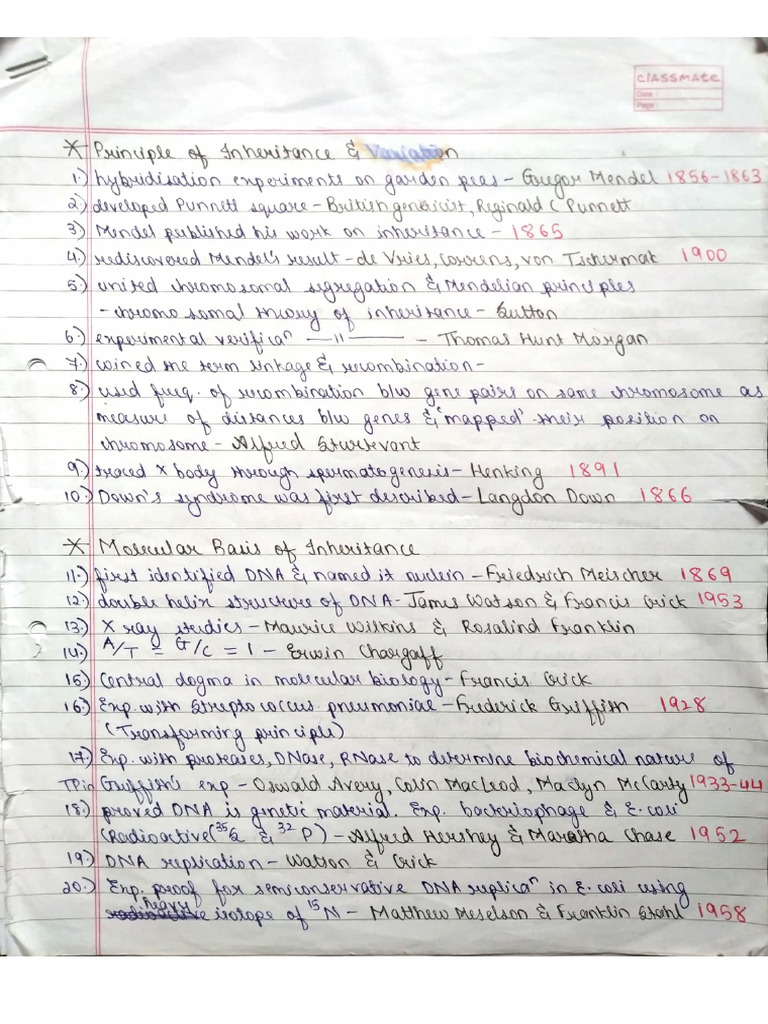 classmate
Date :
Page :
* Principle of Inheritance & Variation
1.) hybridisation experiments on garden peas - Gregor Mendel 1856-1863
2.) developed Punnett square - British geneticist, Reginald C Punnett
3.) Mendel published his work on inheritance - 1865
4.) rediscovered Mendel's result - de Vries, Correns, von Tschermak 1900
5.) united chromosomal segregation & Mendelian principles
- chromosomal theory of inheritance - Sutton
6.) experimental verificaⁿ —11— - Thomas Hunt Morgan
7.) coined the term linkage & recombination -
8.) used freq. of recombination b/w gene pairs on same chromosome as
measure of distances b/w genes & 'mapped' their position on
chromosome - Alfred Sturtevant
9.) traced X body through spermatogenesis - Henking 1891
10.) Down's syndrome was first described - Langdon Down 1866
* Molecular Basis of Inheritance
11.) first identified DNA & named it nuclein - Friedrich Meischer 1869
12.) double helix structure of DNA - James Watson & Francis Crick 1953
13.) X ray studies - Maurice Wilkins & Rosalind Franklin
14.) A/T = G/C = 1 - Erwin Chargaff
15) Central dogma in molecular biology - Francis Crick
16) Exp. with Streptococcus pneumoniae - Frederick Griffith 1928
(Transforming principle)
17.) Exp. with proteases, DNase, RNase to determine biochemical nature of
TP in Griffith's exp - Oswald Avery, Colin MacLeod, Maclyn McCarty 1933-44
18.) proved DNA is genetic material. Exp. bacteriophage & E. coli
(Radioactive (³⁵S & ³²P) - Alfred Hershey & Martha Chase 1952
19.) DNA replication - Watson & Crick
20.) Exp. proof for semiconservative DNA replicaⁿ in E. coli using
heavy isotope of ¹⁵N - Matthew Meselson & Franklin Stahl 1958